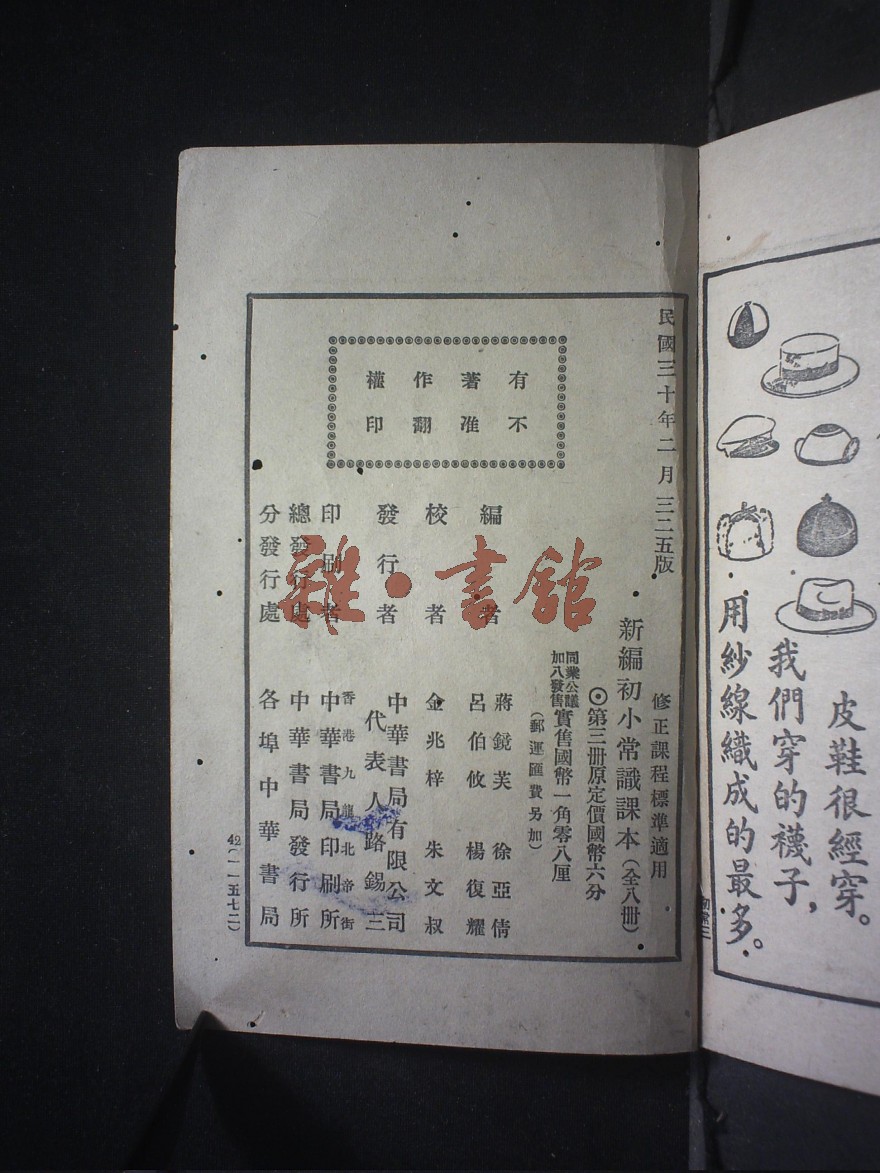 皮鞋很經穿。
我們穿的襪子，
用紗線織成的最多。
民國三十年二月三二五版
修正課程標準適用
新編初小常識課本（全八冊）
◎第三冊原定價國幣六分
同業公議
加八發售
實售國幣一角零八厘
（郵運匯費另加）
有不
著准
作翻
權印
編者
蔣鏡芙 徐亞倩
呂伯攸 楊復耀
校者
金兆梓 朱文叔
發行者
中華書局有限公司
代表人路錫三
印刷者
香港九龍北帝街
中華書局印刷所
總發行處
中華書局發行所
分發行處
各埠中華書局
42（一一五七二）
雜·書館